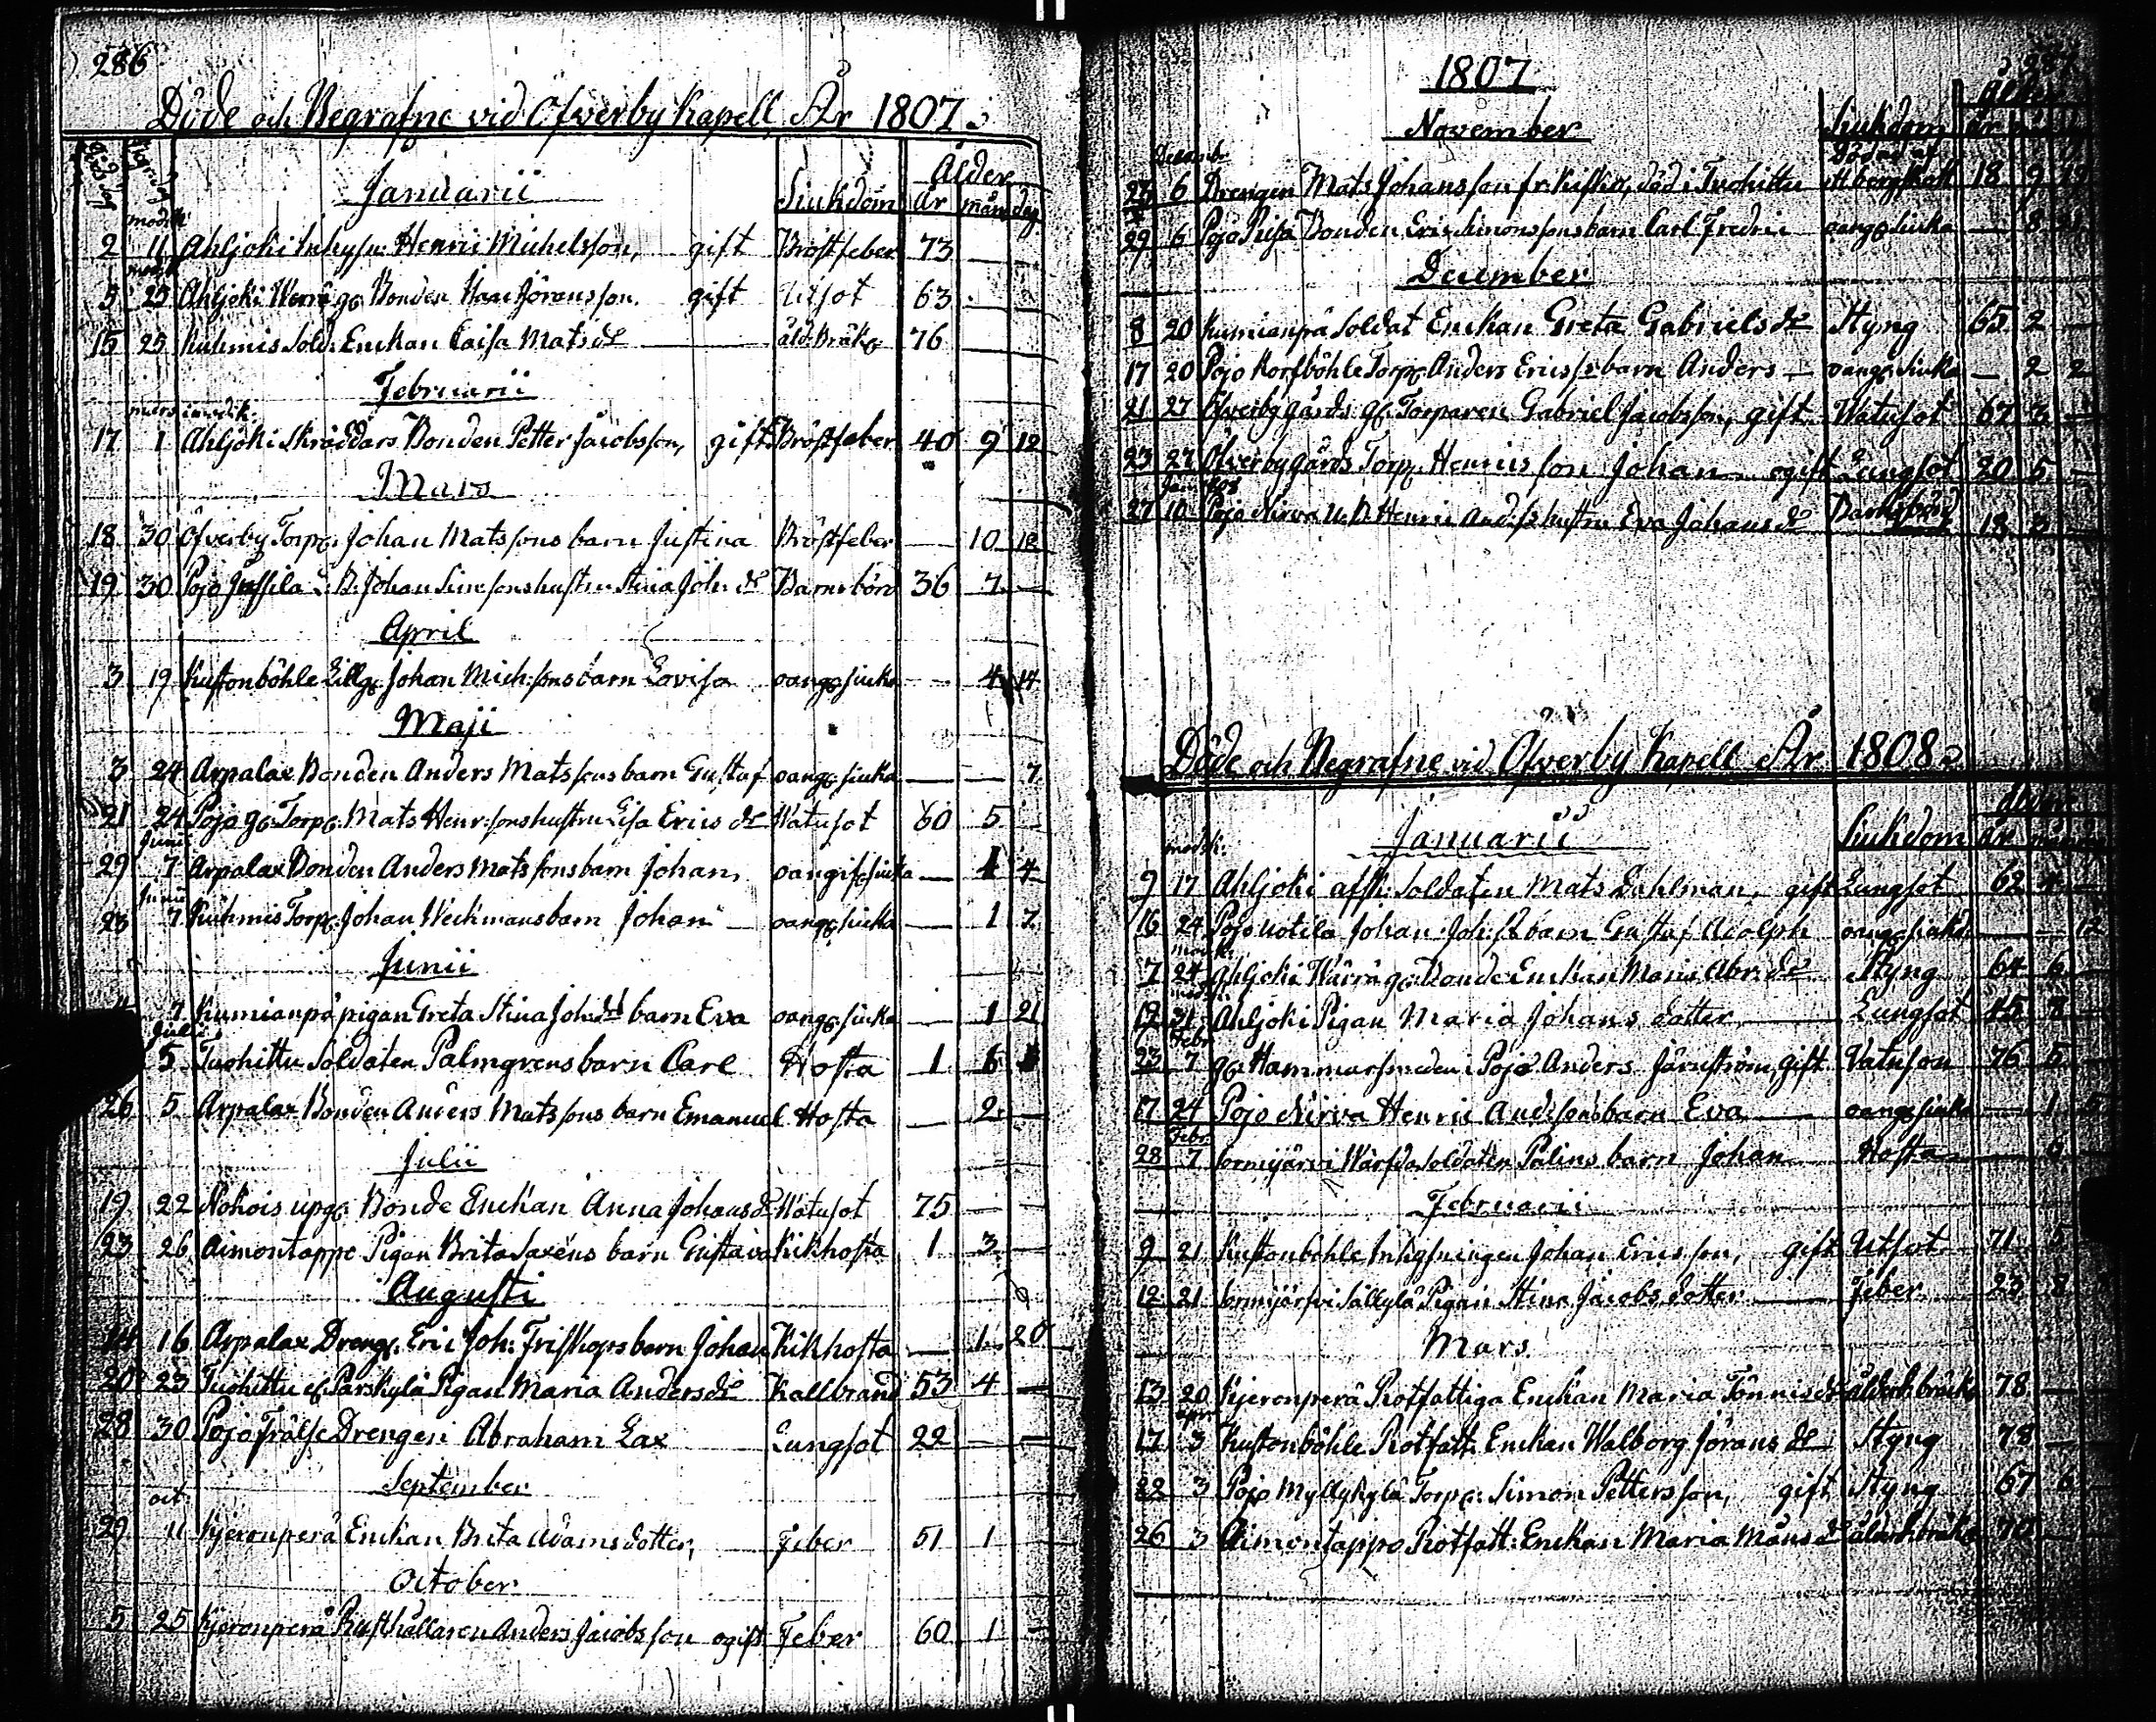 286
Döde och Begrafne vid Öfverby Kapell År 1807.
Januarii Siukdom Ålder
År mån dag
modk:
2 11 Ahljoki Inhys: Henric Michelsson, gift Bröstfeber 73
modk
5 25 Ahljoki Wärrä gg Bonden Jöransson, gift Utsot 63
15 25 Kuhmis Sold: Enckan Caisa Matsdr åld: Bräkg 76
Februarii
mars i modk:
17 1 Ahljoki Skräddars Bonden Petter Jacobsson, gift Bröstfeber 40 9 12
Mars
18 30 Öfverby Torpg: Johan Matssons barn Justina Bröstfeber — 10 12
19 30 Pojo Jussila Johan Simssons hustru Stina Joh: dr Barnsbörd 36 7 —
April
3 19 Kustonböhle Lillg: Johan Mich:sons barn Lovisa oangg siuka — 4 14
Maji
3 24 Arpalax Bonden Anders Matssons barn Gustaf oangg siuka — — 7
21 24 Pojo gg Torpg: Mats Henr:sons hustru Lisa Erics dr Watusot 60 5
Junii
29 7 Arpalax Bonden Anders Matssons barn Johan oangifg siuka — 1 4
Junii
23 7 Kuhmis Torpg: Johan Weckmans barn Johan — oangg siuka — 1 7
Junii
7 Kumianpä pigan Greta Stina Joh: dr barn Eva oangg siuka — 1 21
Julii
5 Tuohittu Soldaten Palmgrens barn Carl Hosta 1 6
26 5 Arpalax Bonden Anders Matssons barn Emanuel Hosta — 2 —
Julii
19 22 Nokois upg: Bonde Enckan Anna Johans dr Watusot 75 — —
23 26 Aimontappo Pigan Brita Saxéns barn Gustava Kikhosta 1 3 —
Augusti
14 16 Arpalax Drengg: Eric Joh: Friskops barn Johan Kikhosta — 1 20
20 23 Tuohittu Parskylä Pigan Maria Anders dr Kallbrand 53 4 —
28 30 Pojo Frälse Drengen Abraham Lax Lungsot 22 — —
September
oct:
29 11 Kjeronperä Enckan Brita Adams dotter, Feber 51 1
October
5 25 Kjeronperä Rusthållaren Anders Jacobsson ogift Feber 60 1 —
287
1807
November Siukdom Ålder
År
Decemb: Dödad af
6 Drengen Mats Johansson fr: Kiskio, död i Tuohittu 18 9
29 6 Pojo Prisa Bonden Eric Simonssons barn Carl Fredric oangg siuka — 8
December
8 20 Kumianpä Soldat Enckan Greta Gabriels dr Styng 65 2 —
17 20 Pojo Korsböhle Torpg: Anders Ericss: barn Anders — oangg siuka — 2 2
21 27 Öfverby gårds gg Torparen Gabriel Jacobsson, gift Watusot 67 3 —
23 27 Öfverby gårds Torpg: Henrics son Johan ogift Lungsot 20 5 —
Jan: 1808
27 10 Pojo Nirva Henric And:ss hustru Eva Johans dr Barnsbörd 18
Döde och Begrafne vid Öfverby Kapell År 1808
Januarii Siukdom Ålder
modk:
9 17 Ahljoki afsk: Soldaten Mats Dahlman, gift Lungsot 62
16 24 Pojo Uotila Johan Joh:ss barn Gustaf Adolph oangg siuka — — 12
modk:
7 24 Ahljoki Wärrä gg Bonde Enckan Maria Abr: dr Styng 64 6
12 31 Ahljoki Pigan Maria Johans dotter Lungsot 45 8
Febr:
23 7 gg Hammarsmeden i Pojo Anders Järnström, gift Vatuson 76 5
17 24 Pojo Nirva Henric And:sons barn Eva oangg siuka — 1
Febr:
28 7 Sormijärvi Wärfda Soldaten Palins barn Johan Hosta — 6
Februarii
9 21 Kustonböhle Inhysningen Johan Ericsson, gift Utsot 71 5
12 21 Sormijärfvi Sälkylä Pigan Stina Jacobs dotter Feber 23 8
Mars
13 20 Kjeronperä Rotfattiga Enckan Maria Tönnis dr ålderd: bräkg 78 —
April
17 3 Kustonböhle Rotfatt: Enckan Walborg Jörans dr Styng 78 —
22 3 Pojo Myllykylä Torpg: Simon Pettersson, gift Styng 67 6
26 3 Aimontappo Rotfatt: Enckan Maria Måns dr ålderd: bräkg 70 —